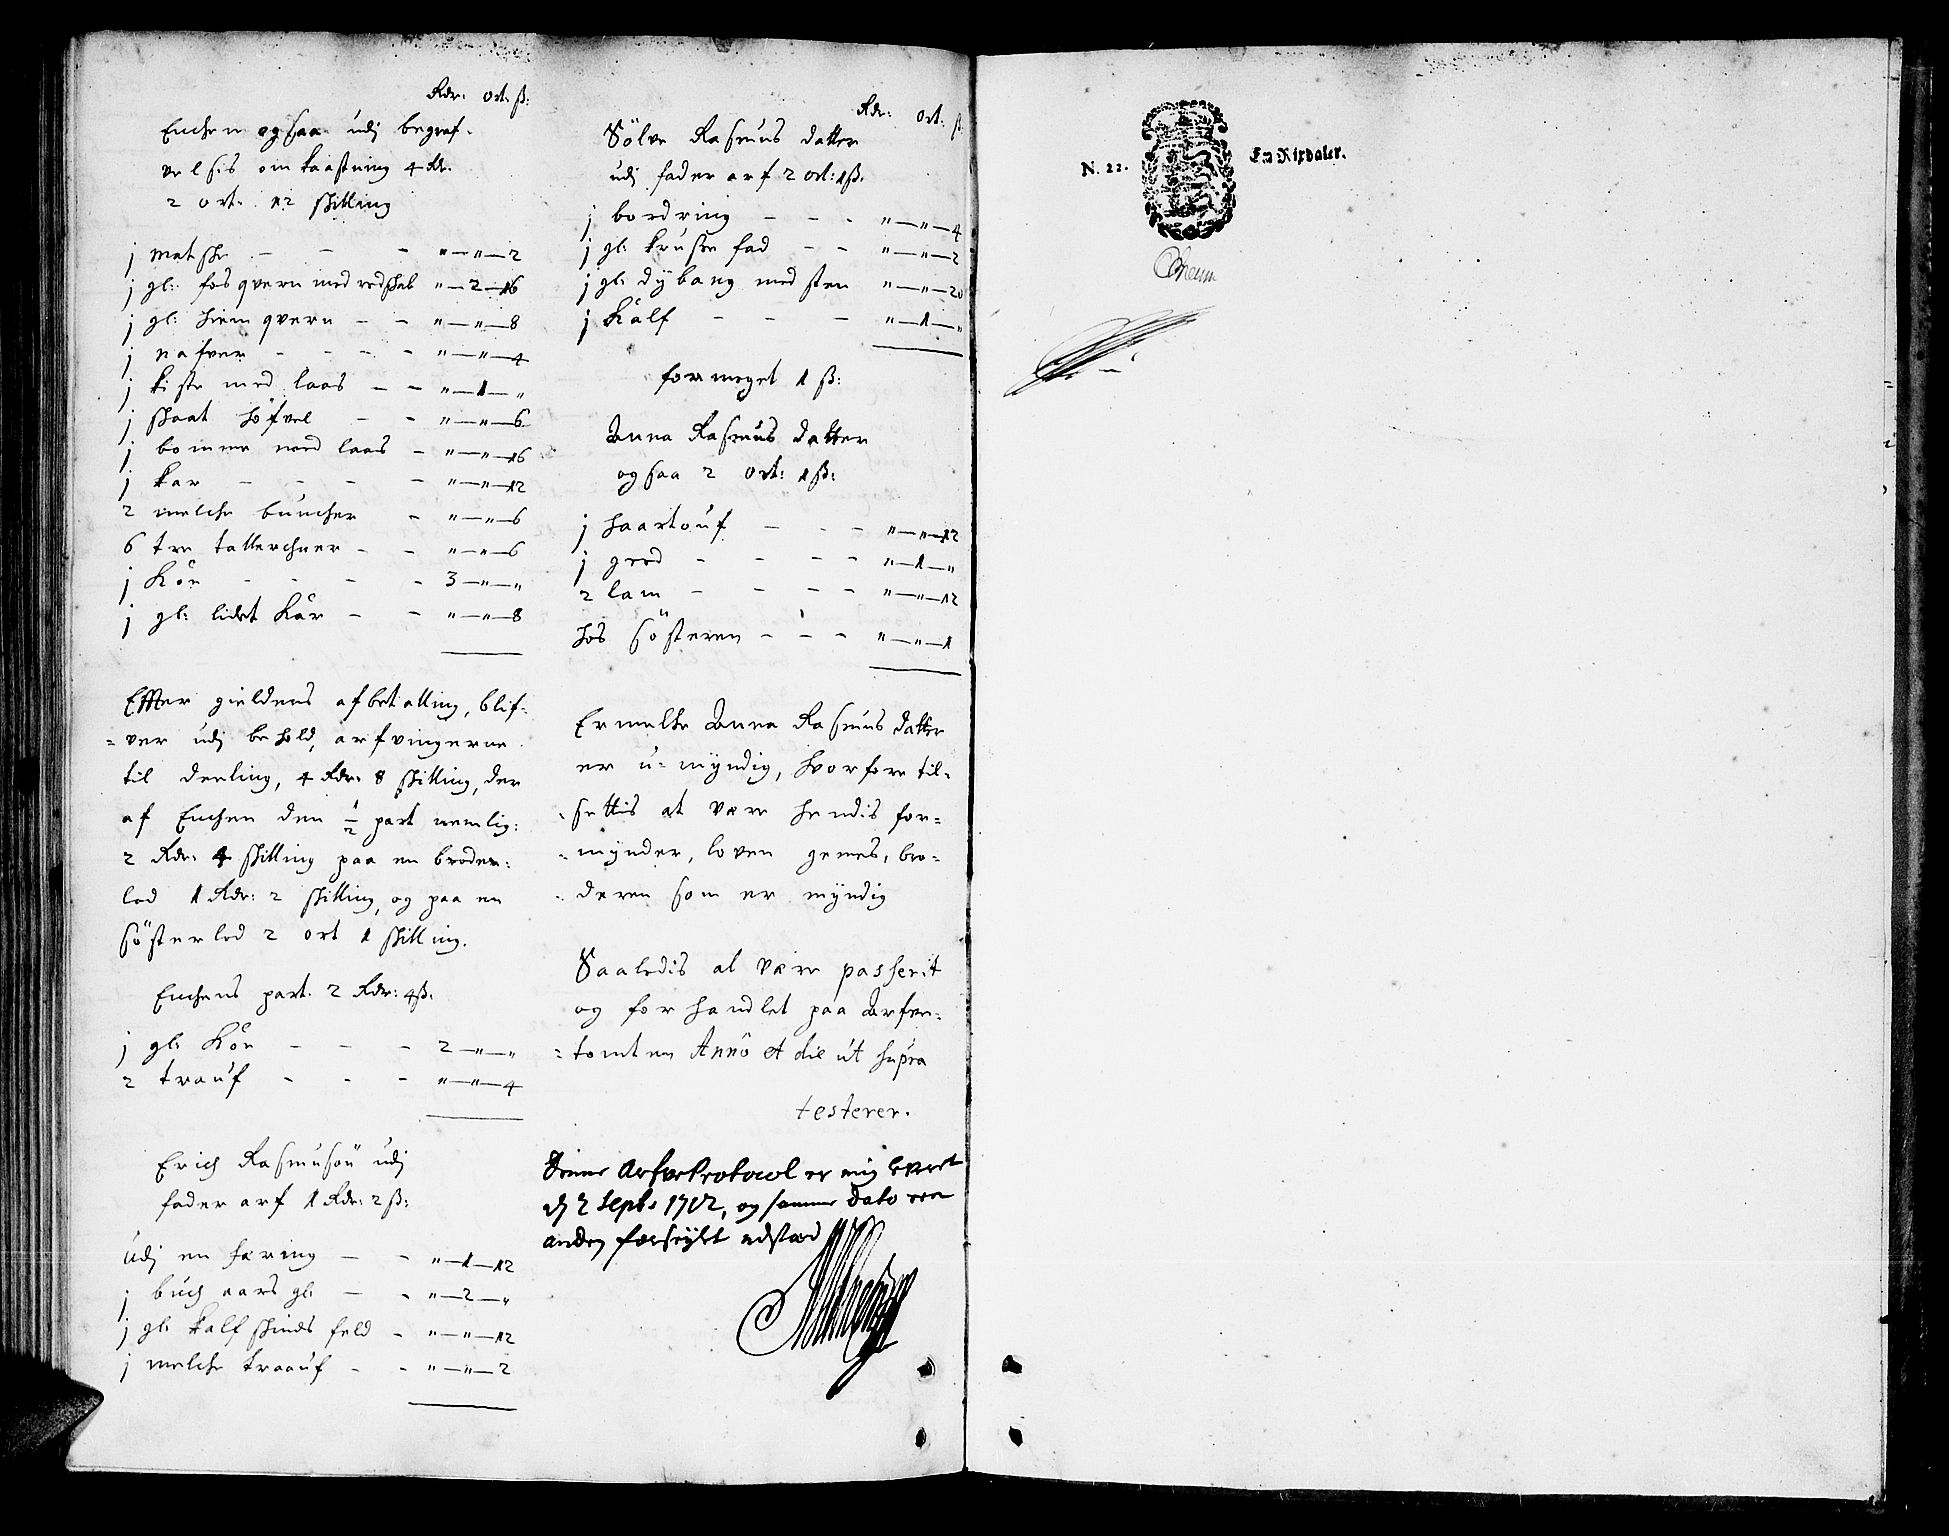 Rdr: ort: ß:
Enchen ogsaa udj begraf-
velsis omkaastning 4 Rdr.
2 ort: 12 skilling
j matske - - - „—„—2
j gl: fos qvern med redskab „—2—16
j gl: hiem qvern - - „—„—8
j nafver - - - - „—„—4
j kiste med laas - - „—1—„
j skaat höfvel - - „—„—6
j bomme med laas - „—„—16
j kar - - - - „—„—12
2 melche buncher - „—„—6
6 tre tallerchner - - „—„—6
j Kön - - - - 3—„—„
j gl: lidet Kar - - „—„—8
Effter gieldens afbetalling, blif-
=ver udj behold, arfvingerne
til deeling, 4 Rdr: 8 skilling, der
af Enchen den 1/2 part nemlig:
2 Rdr: 4 skilling paa en broder:
lod 1 Rdr: 2 skilling, og paa en
söster lod 2 ort 1 skilling.
Enchens part. 2 Rdr: 4ß:
j gl: Kön - - - 2—„—„
2 trauf - - - „—„—4
Erich Rasmusön udj
fader arf 1 Rdr: 2 ß:
Udj en færing - - „—1—12
j buch aars gl: - - „—2—„
j gl: kalf skinds feld - „—„—12
j melche traauf - - „—„—2
Rdr: ort: ß
Sölve Rasmus datter
udj fader arf 2 ort: 1ß.
j bordring - - - „—„—4
j gl: kruse fad - - „—„—2
j gl: dybang med sten „—„—20
j Kalf - - - „—1—„
for meget 1 ß:
Anna Rasmus datter
ogsaa 2 ort: 1ß:
j haartouf - - - „—„—12
j gred - - - - „—1—„
2 lam - - - - „—„—12
hos sösteren - - - „—„—1
Ermelte Anna Rasmus datter
er u-myndig, hvorfore til-
settis at være hendis for=
=mynder, loven gemes, bro=
deren som er myndig
Saaledis at være passerit
og forhandlet paa Arfve=
=tomten Annô et die ut supra
testerer.
Denne Arfve Protocol er mig levert
d 2 Septb: 1702, og samme Dato een
anden forseiglet udstæd
N. 22. En Rixdaler.